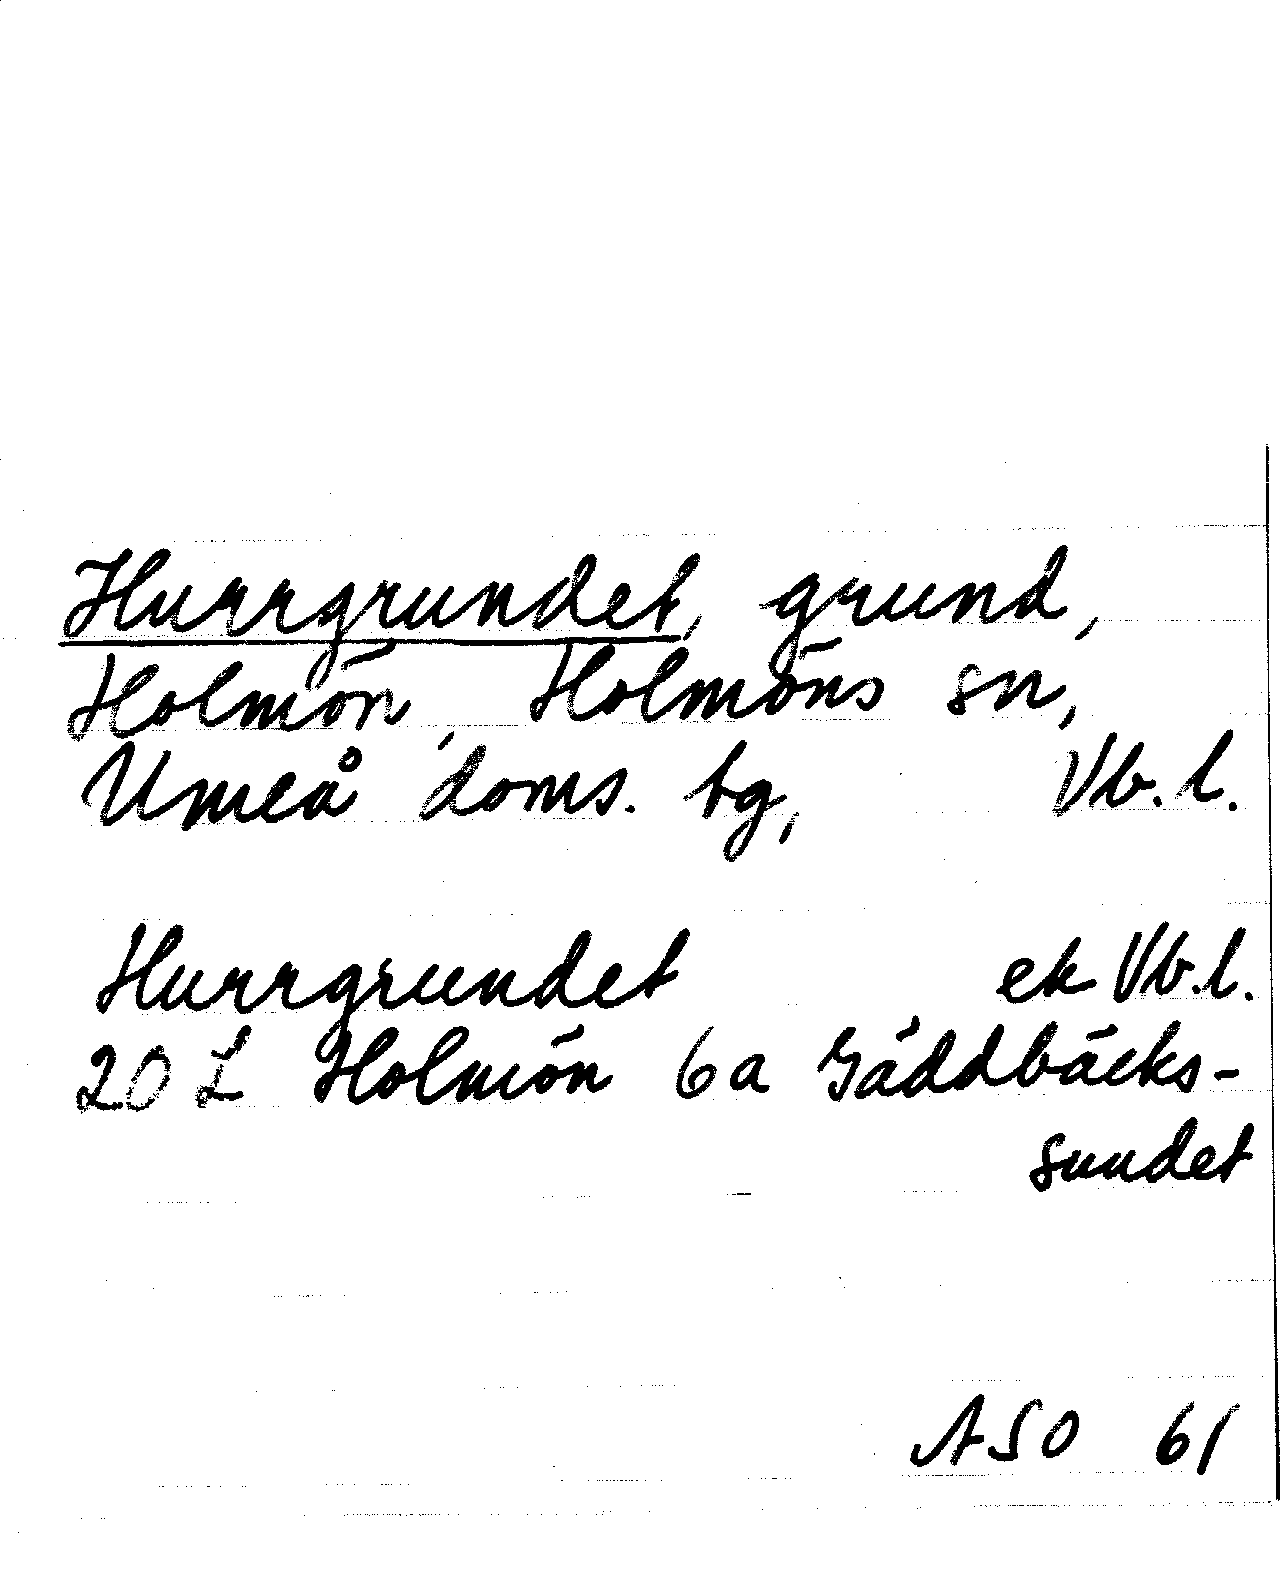 Hurrgrundet, grund,
Holmön, Holmöns sn,
Umeå doms. tg, Vb. l.
Hurrgrundet ek Vb. l.
20 L Holmön 6a Gäddbäcks-
sundet
ASO 61